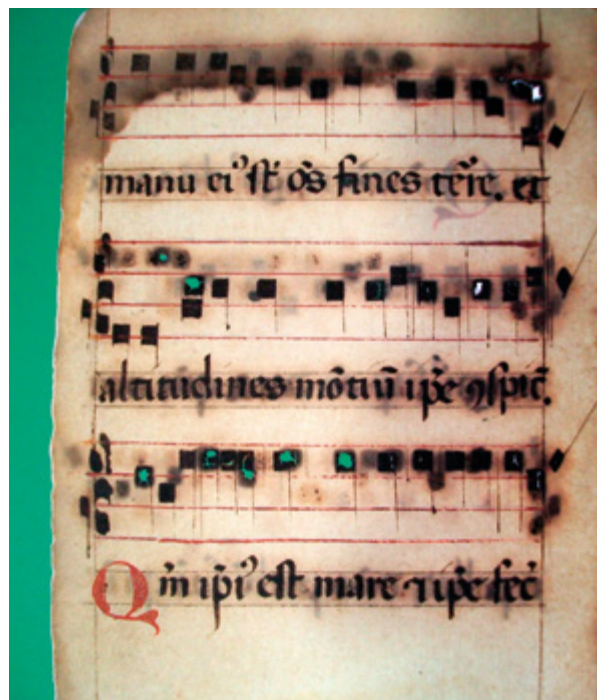 manu eiꝰ st̄ oſ̄ fines tr̄e. et
altitudines mōtiū ip̄e ꝯſpic̄.
Qm̄ ip̄iꝰ eſt mare ⁊ ip̄e fec̄